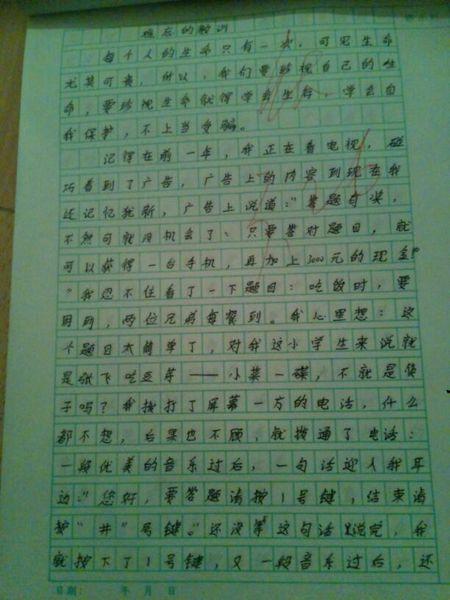 难忘的教训
每个人的生命只有一次，可见生命
尤其可贵，所以，我们要珍视自己的生
命，要珍视生命就得学会生存，学会自
我保护，不上当受骗。
记得在前一年，我正在看电视，碰
巧看到了广告，广告上的内容到现在我
还记忆犹新，广告上说道："答题有奖，
不然可就没机会了：只要答对题目，就
可以获得一台手机，再加上3000元的现金"
"我忍不住看了一下题目：吃饭时，要
用到，两位兄弟每餐到。我心里想：这
个题目太简单了，对我这小学生来说就
是张飞吃豆芽——小菜一碟，不就是筷
子吗？我拨打了屏幕一方的电话，什么
都不想，后果也不顾，就拨通了电话：
一段优美的音乐过后，一句话迎入我耳
边："您好，要答题请按1号键，结束请
按"井"号键。"还没等这句话说完，我
就按下了1号键，又一段音乐过后，还
日期： 年 月 日